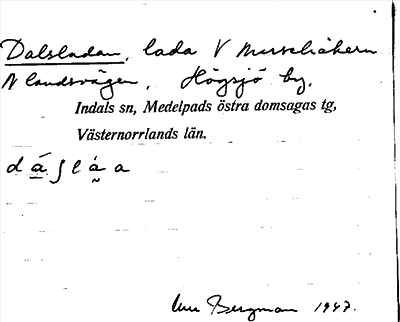 Dalsladan, lada V
N landsvägen, Högsjö by.
Indals sn, Medelpads östra domsagas tg,
Västernorrlands län.
Bergman 1947.